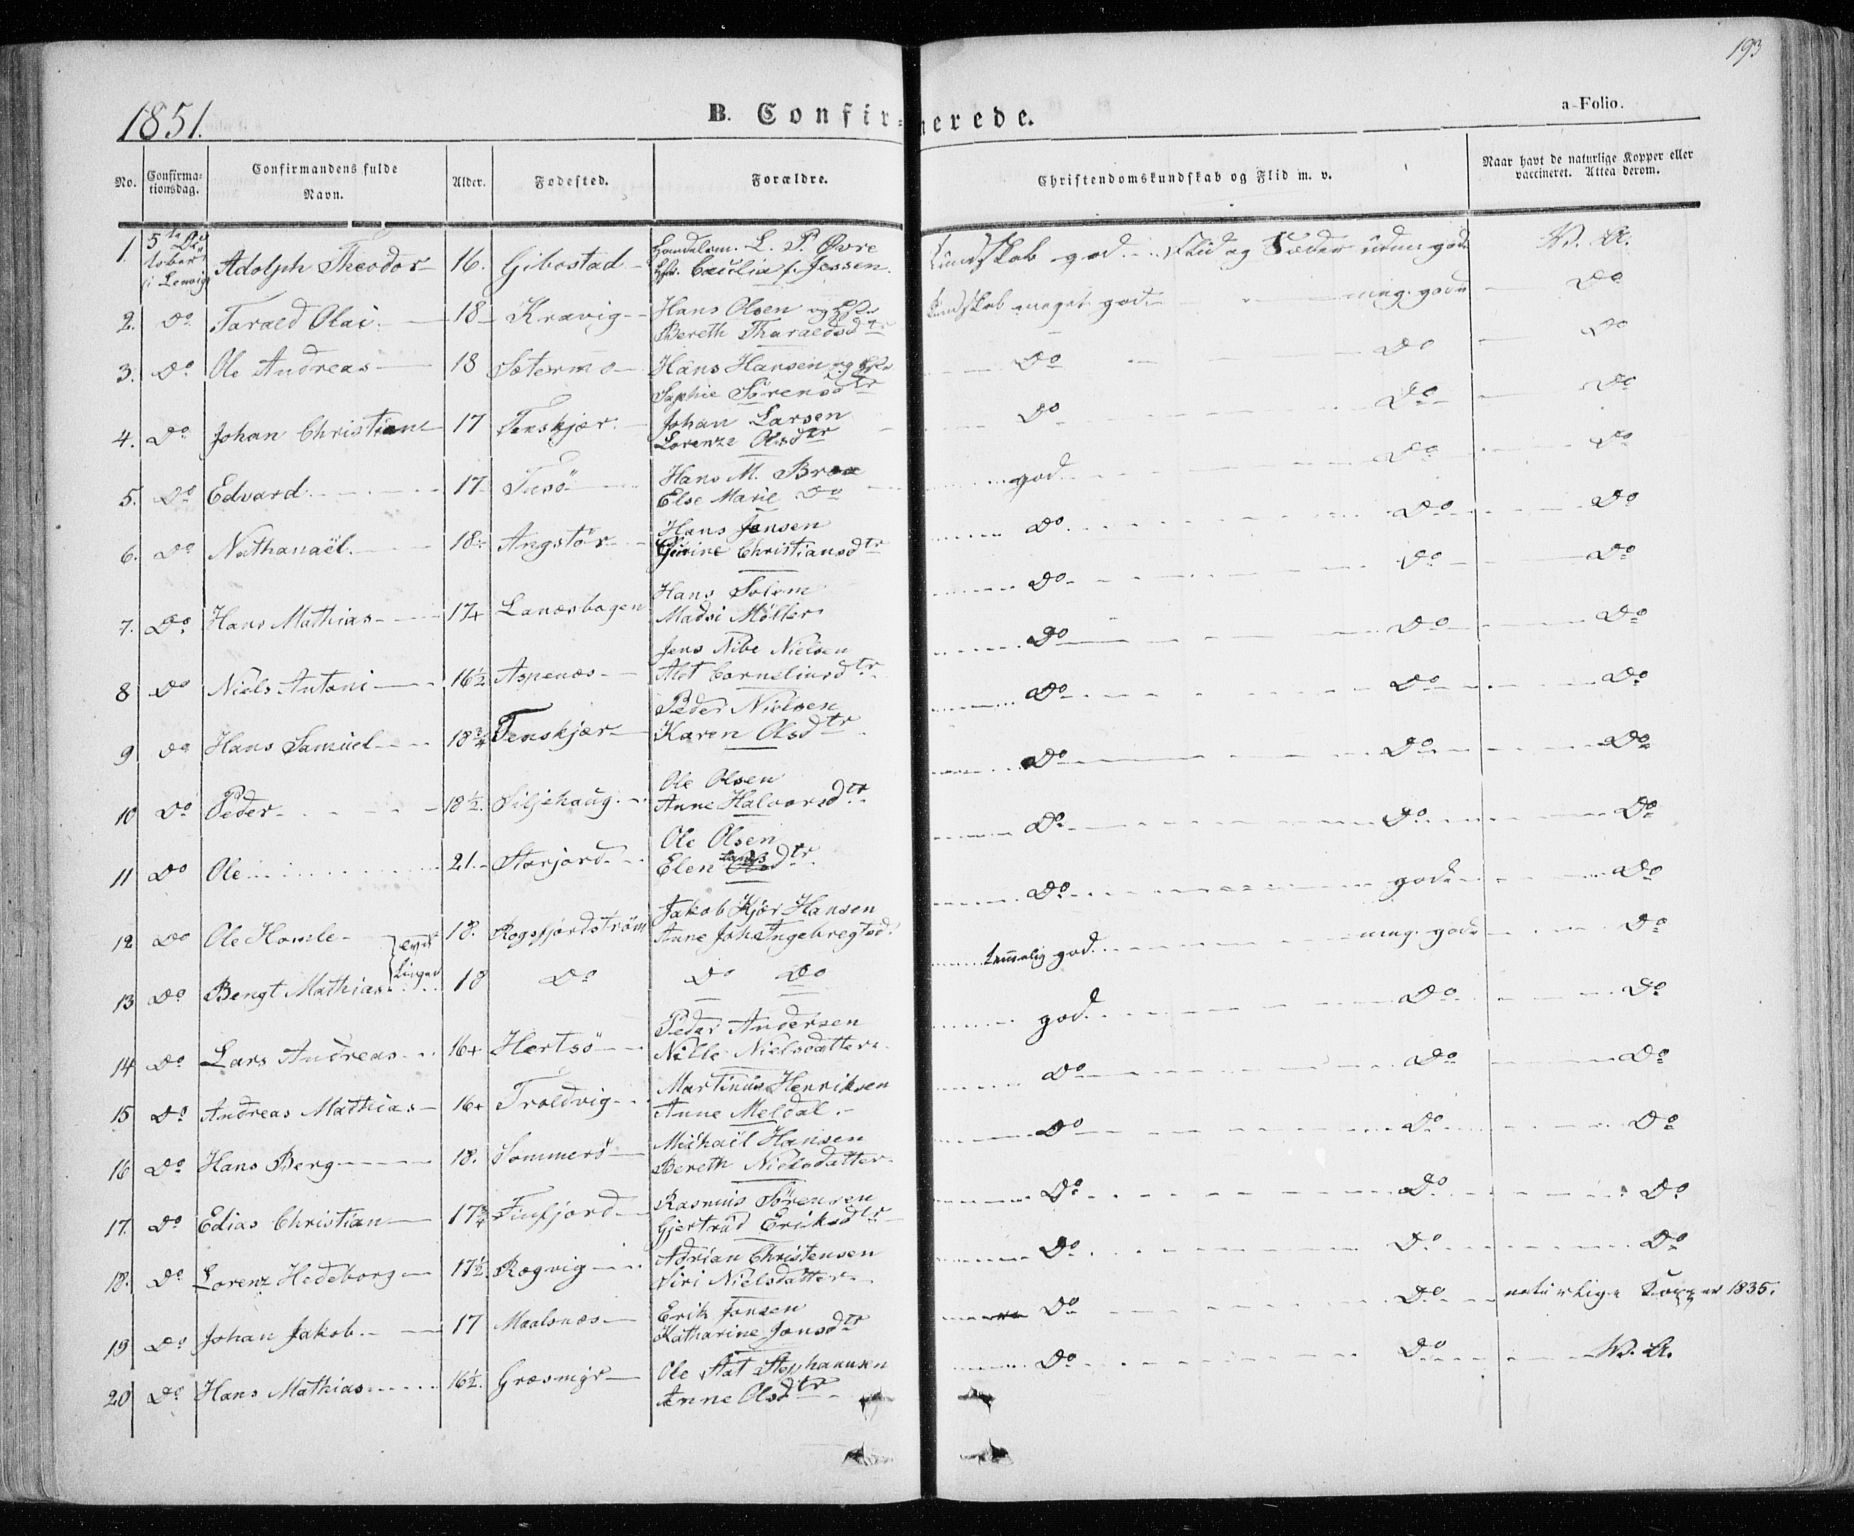 193
1851.
B. Confirmerede.
a-Folio.
No.
Confirma-
tionsdag.
Confirmandens fulde
Navn.
Alder.
Fodested.
Forældre.
Christendomskundskab og Flid m. v.
Naar havt de naturlige Kopper eller
vaccineret. Attea derom.
1. 5te Oc
tober
i Lenvig Adolph Theodor 16. Gibostad Handelsm. L. P. Øvre
Cecilia f. Jessen. Kundskab god. Flid og Sæder uden gode V. A.
2. Do Tarald Olai. 18 Kravig Hans Olsen og
Bereth Tharaldsdtr Kundskab meget god meg. gode Do
3. Do Ole Andreas 18 Sætermo Hans Hansen og
Sophie Sörensdtr Do Do Do
4. Do Johan Christian 17 Tenskjær Johan Larsen
Lorenze Olsdtr Do Do Do
5. Do Edvard 17 Tusö Hans M. Brox
Else Marie Do god Do Do
6. Do Nathanaël. 18 Angstör Hans Jensen
Christiansdtr Do Do Do
7. Do Hans Mathias 17+ Lanæsbogen Hans Solem
Madsi Möller Do Do Do
8 Do Niels Antoni 16½ Aspenæs Jens Nibe Nielsen
Alet Corneliusdtr Do Do Do
9 Do Hans Samuel 18¾ Tenskjær Peder Nielsen
Karen Olsdtr Do Do Do
10 Do Peder 18½. Siljehaug. Ole Olsen
Anne Halvorsdtr Do Do Do
11 Do Ole 21. Storjord Ole Olsen
Elen Larsdtr Do Do Do
12 Do Ole Homle 18. Rogsfjordström Jakob Kjær Hansen
Anne Joh. Ingebregtsd. Do gode Do
13 Do Bengt Mathias 18 Do Do Do temmelig god meg. gode Do
14 Do Lars Andreas 16+ Hertsö Peder Andersen
Nille Nielsdatter god Do Do
15 Do Andreas Mathias 16+ Troldvig Martinus Henriksen
Anne Meldal. Do Do Do
16 Do Hans Berg 18. Sommerö Michaël Hansen
Bereth Nielsdatter Do Do Do
17. Do Edias Christian 17¾ Finfjord Rasmus Sörensen
Gjertrud Eriksdtr Do Do Do
18. Do Lorenz Hedeborg 17½ Rogvig Adrian Christensen
Siri Nielsdatter Do Do Do
19 Do Johan Jakob 17 Maalsnæs Erik Jonsen
Katharine Jonsdtr Do Do naturlige Kopper 1835.
20 Do Hans Mathias 16½. Græsmyr Ole Stephanusen
Anne Olsdtr Do Do V. A.